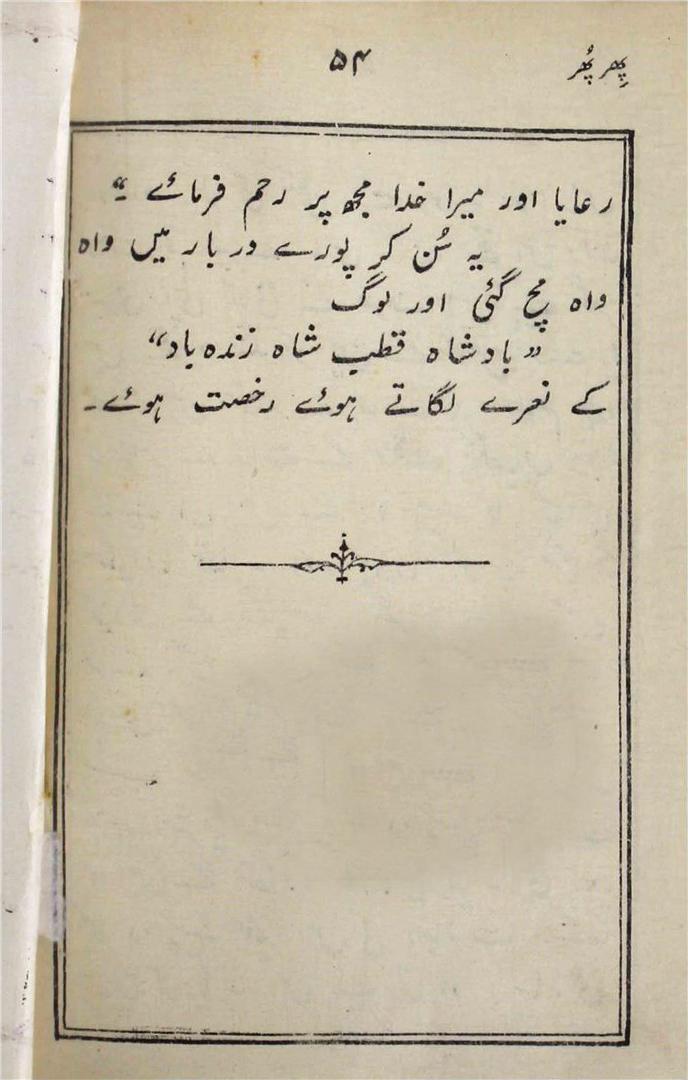 پھر پھُر
۵۴
رعایا اور میرا خدا مجھ پر رحم فرمائے ۔“
یہ سُن کر پورے دربار میں واہ
واہ مچ گئی اور لوگ
”بادشاہ قطب شاہ زندہ باد“
کے نعرے لگاتے ہوئے رخصت ہوئے۔